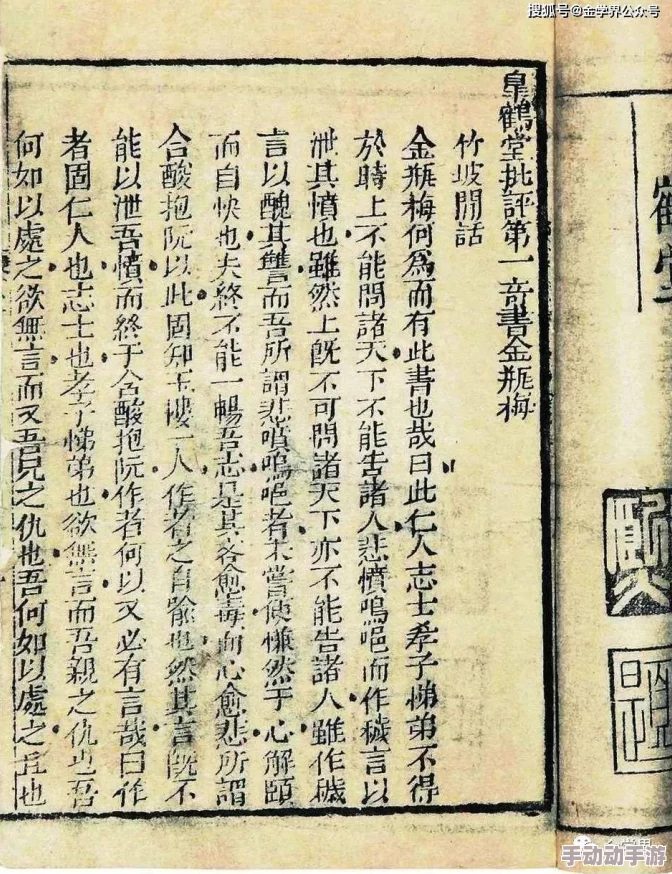 搜狐号@金学界公众号
皐鶴堂批評第一奇書金瓶梅
竹坡閒話
金瓶梅何為而有此書也哉曰此仁人志士孝子悌弟不得
於時上不能問諸天下不能告諸人悲憤嗚唈而作穢言以
泄其憤也雖然上既不可問諸天下亦不能告諸人雖作穢
言以醜其讐而吾所謂悲憤嗚唈者未嘗便慊然于心解頤
而自快也夫終不能一暢吾志是其言愈毒而心愈悲所謂
含酸抱阮以此固知玉樓一人作者之自喻也然其言既不
能以泄吾憤而終于含酸抱阮作者何以又必有言哉曰作
者固仁人也志士也孝子悌弟也欲無言而吾親之仇也吾
何如以處之欲無言而又吾兄之仇也吾何如以處之且也
金学界
手动动手游